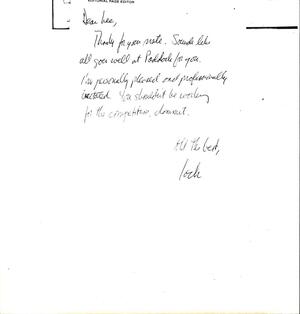 EDITORIAL PAGE EDITOR
Dear Lee,
Thanks for your note. Sounds like
all goes well at for you.
I'm personally pleased and professionally
You shouldn't be working
for the competition, dammit.
All the best,